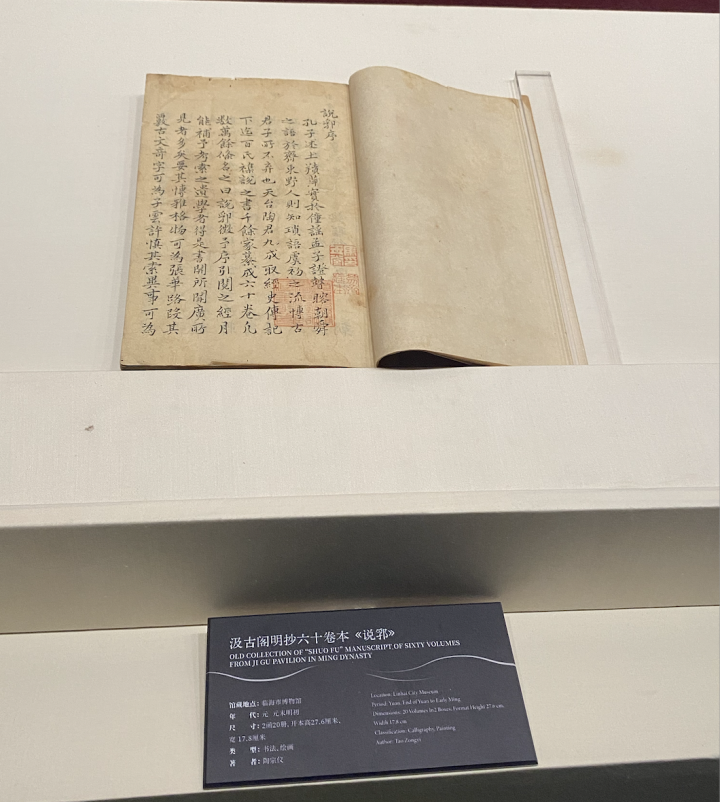 說郛序
孔子述土羵萍實於僮謠孟子證瞽瞍朝舜
之語於齊東野人則知瑣語虞初之流博古
君子所不弃也天台陶君九成取經史傳記
下迄百氏襍說之書千餘家纂成六十卷凡
數萬餘條名之曰說郛徵予序引閱之經月
能補予考索之遺學者得是書開所聞廣所
見者多矣要其博雅格物可為張華路段其
覈古文奇字可為子雲許慎其索異事可為
汲古阁明抄六十卷本《说郛》
OLD COLLECTION OF "SHUO FU" MANUSCRIPT OF SIXTY VOLUMES
FROM JI GU PAVILION IN MING DYNASTY
馆藏地点：临海市博物馆
年 代：元 元末明初
尺 寸：2函20册，开本高27.6厘米，
宽 17.8厘米
类 型：书法，绘画
著 者：陶宗仪
Location: Linhai City Museum
Period: Yuan, End of Yuan to Early Ming
Dimensions: 20 Volumes In 2 Boxes, Format Height 27.6 cm,
Width 17.8 cm
Classification: Calligraphy, Painting
Author: Tao Zongyi